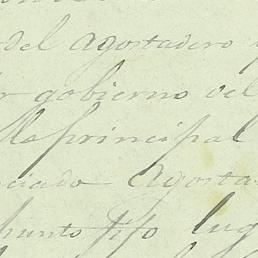 del agostadero
gobierno del
principal
ciado Agosta
punto fijo lug